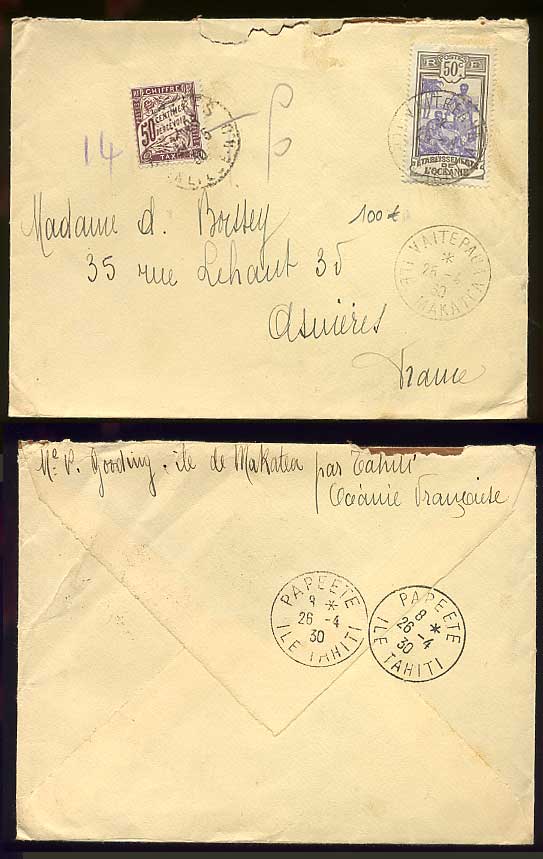 CHIFFRE
50 CENTIMES
A PERCEVOIR
TAXE
14
POSTES
50c
ETABLISSEMENTS
DE
L'OCÉANIE
Madame d. Boissey
100 €
35 rue Lehaut 35
Asnières
France
VAITEPAUA
*
26 -4
30
MAKATEA
Me P. Gooding. île de Makatea par Tahiti
Océanie Française
PAPEETE
8 *
26 -4
30
ILE TAHITI
PAPEETE
8 *
26 -4
30
ILE TAHITI